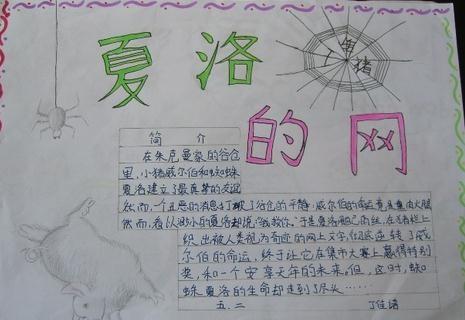 夏洛
猪
的网
简 介
在朱克曼家的谷仓
里,小猪威尔伯和蜘蛛
夏洛建立了最真挚的友谊
然而,一个丑恶的消息打破了谷仓的平静:威尔伯的命运竟是熏肉火腿
然而,看似渺小的夏洛却说:“我救你。”于是夏洛用自己的丝,在猪栏上
织出被人类视为奇迹的网上文字,彻底逆转了威
尔伯的命运,终于让它在集市大赛上赢得特别
奖,和一个安享天年的未来。但,这时,蜘
蛛夏洛的生命却走到了尽头……
五.二 丁佳